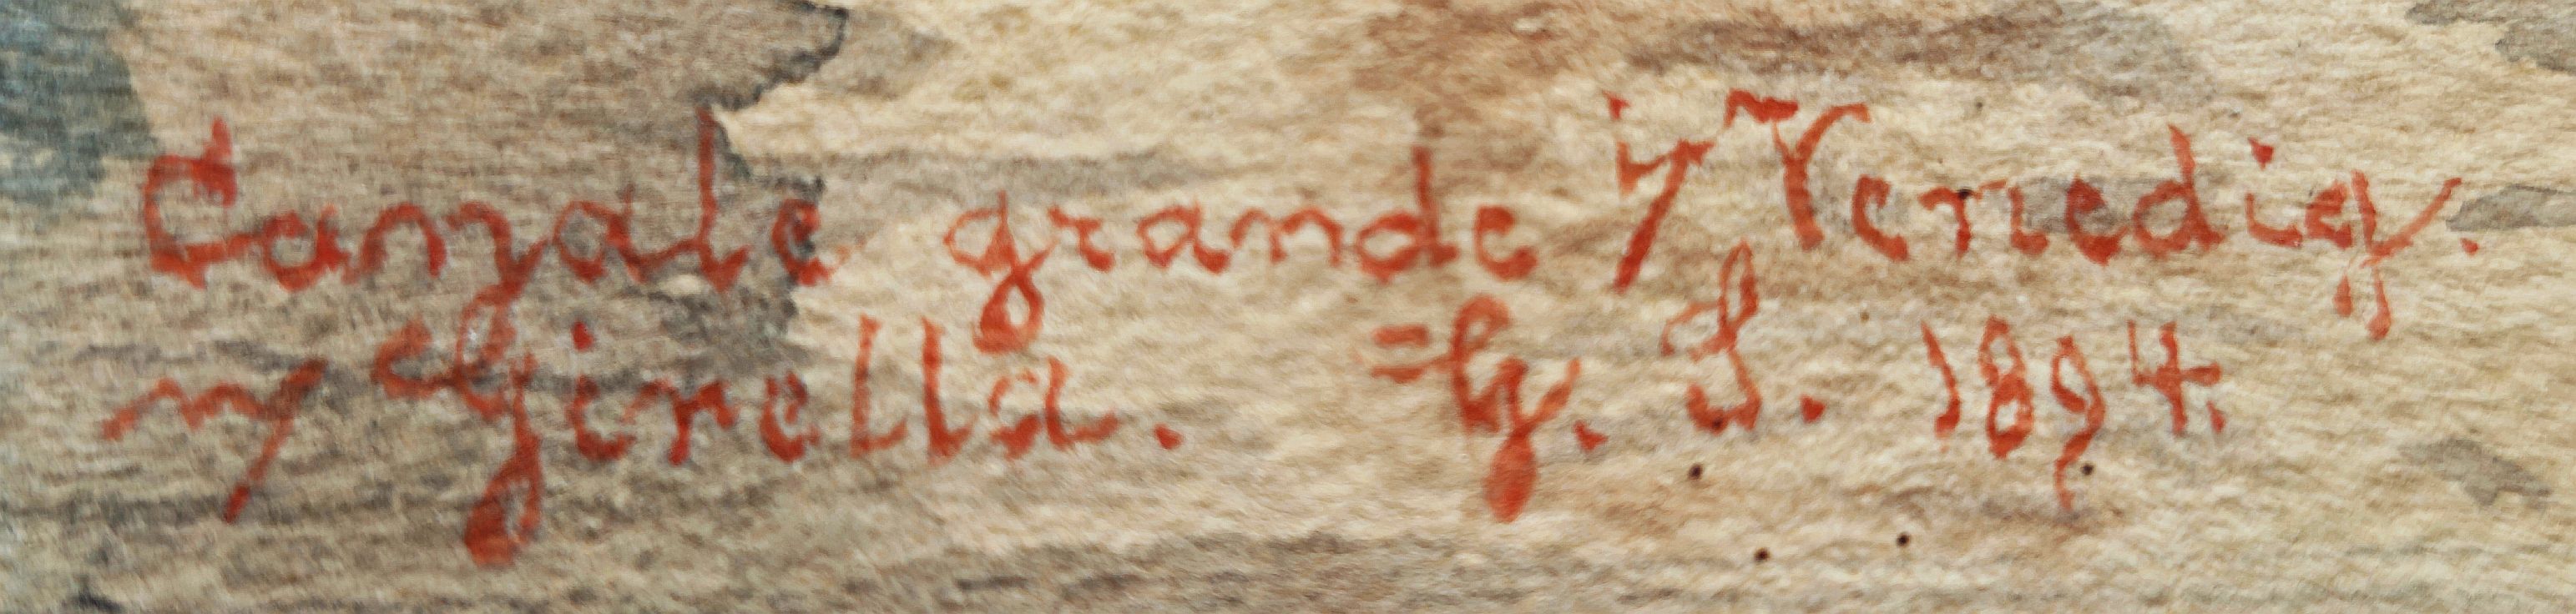 Canzale grande i/ Venedig.
n/ Ginella. =G. S. 1894.